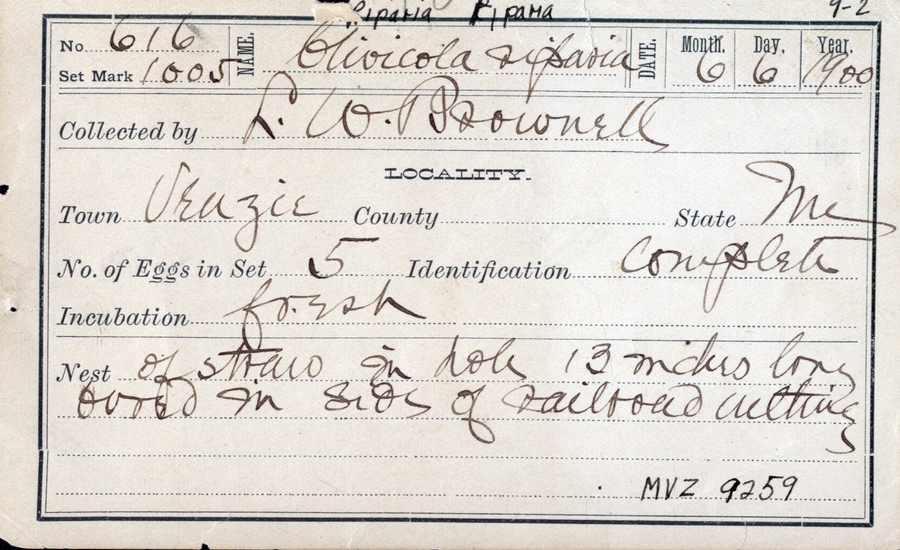 Riparia Riparia 9-2
No. 616 NAME. Clivicola riparia DATE. Month. Day. Year.
Set Mark 1005 6 6 1900
Collected by L. W. Brownell
LOCALITY.
Town Veazie County State Me
No. of Eggs in Set 5 Identification complete
Incubation fresh
Nest of straw in hole 13 inches long
bored in side of railroad cutting
MVZ 9259